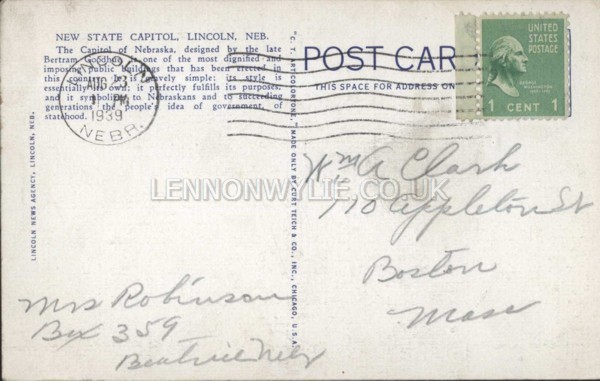 NEW STATE CAPITOL, LINCOLN, NEB.
The Capitol of Nebraska, designed by the late
Bertram Goodhue, is one of the most dignified and
imposing public buildings that has been erected in
this country. It is gravely simple; its style is
essentially its own; it perfectly fulfills its purposes,
and it symbolizes to Nebraskans and to succeeding
generations the people's idea of government, of
statehood.
AUG 23
PM
1939
NEBR.
LINCOLN NEWS AGENCY, LINCOLN, NEB.
"C.T. ART-COLORTONE" MADE ONLY BY CURT TEICH & CO., INC., CHICAGO, U.S.A.
POST CAR
THIS SPACE FOR ADDRESS ON
UNITED
STATES
POSTAGE
GEORGE
WASHINGTON
1 CENT 1
Wm A Clark
110 Appleton St
Boston
Mass
LENNONWYLIE.CO.UK
Mrs Robinson
Box 359
Beatrice Neb